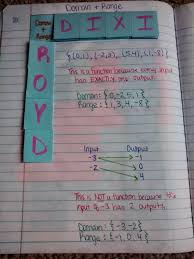 Domain + Range
Domain + Range
D I X I
R
O
Y
D
{(0,1), (-2,3), (5,4), (1,-8)}
This is a function because every input
has EXACTLY one output.
Input Output
-3 -1
-2 0
4
This is NOT a function because the
input of -3 has 2 outputs.
Domain: {-3,-2}
Range: {-1, 0, 4}